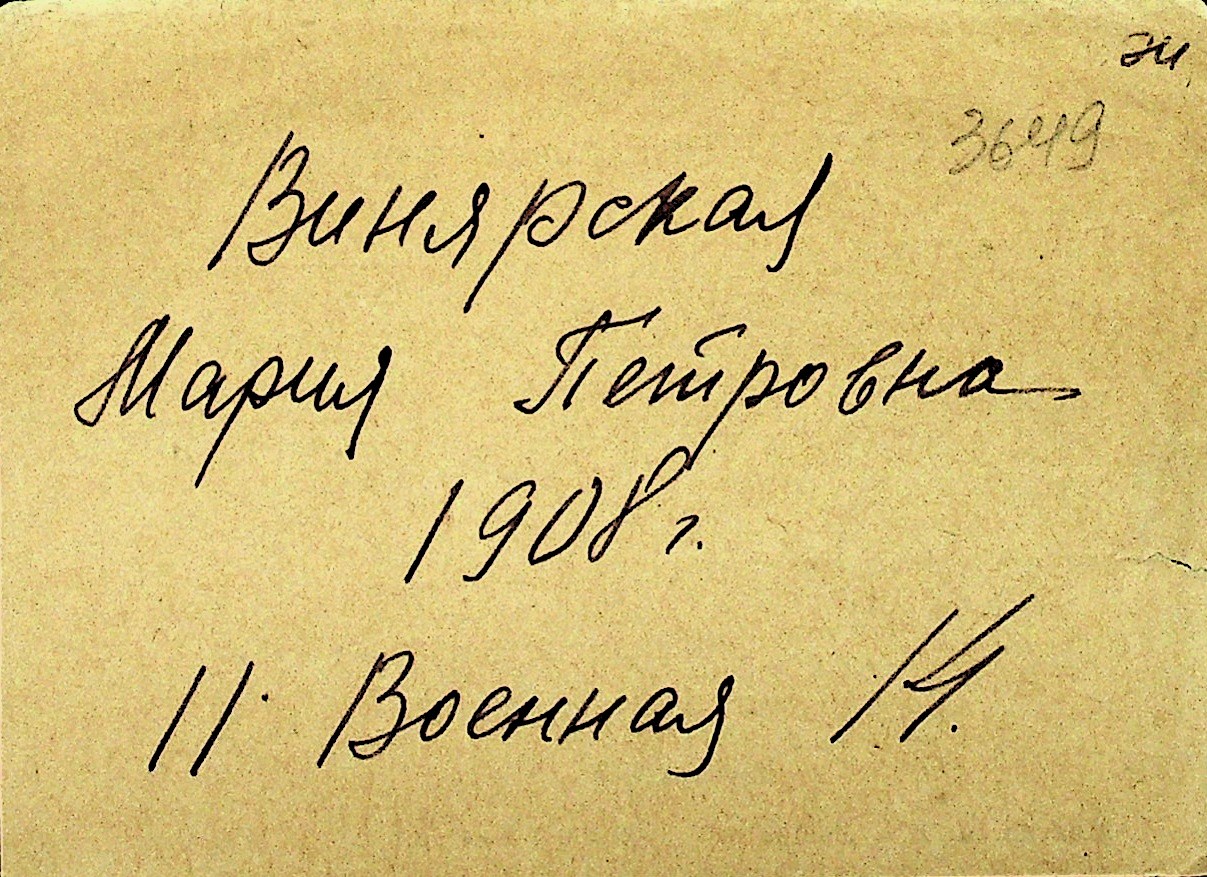 3649
Винярская
Мария Петровна
1908 г.
11 Военная 14.